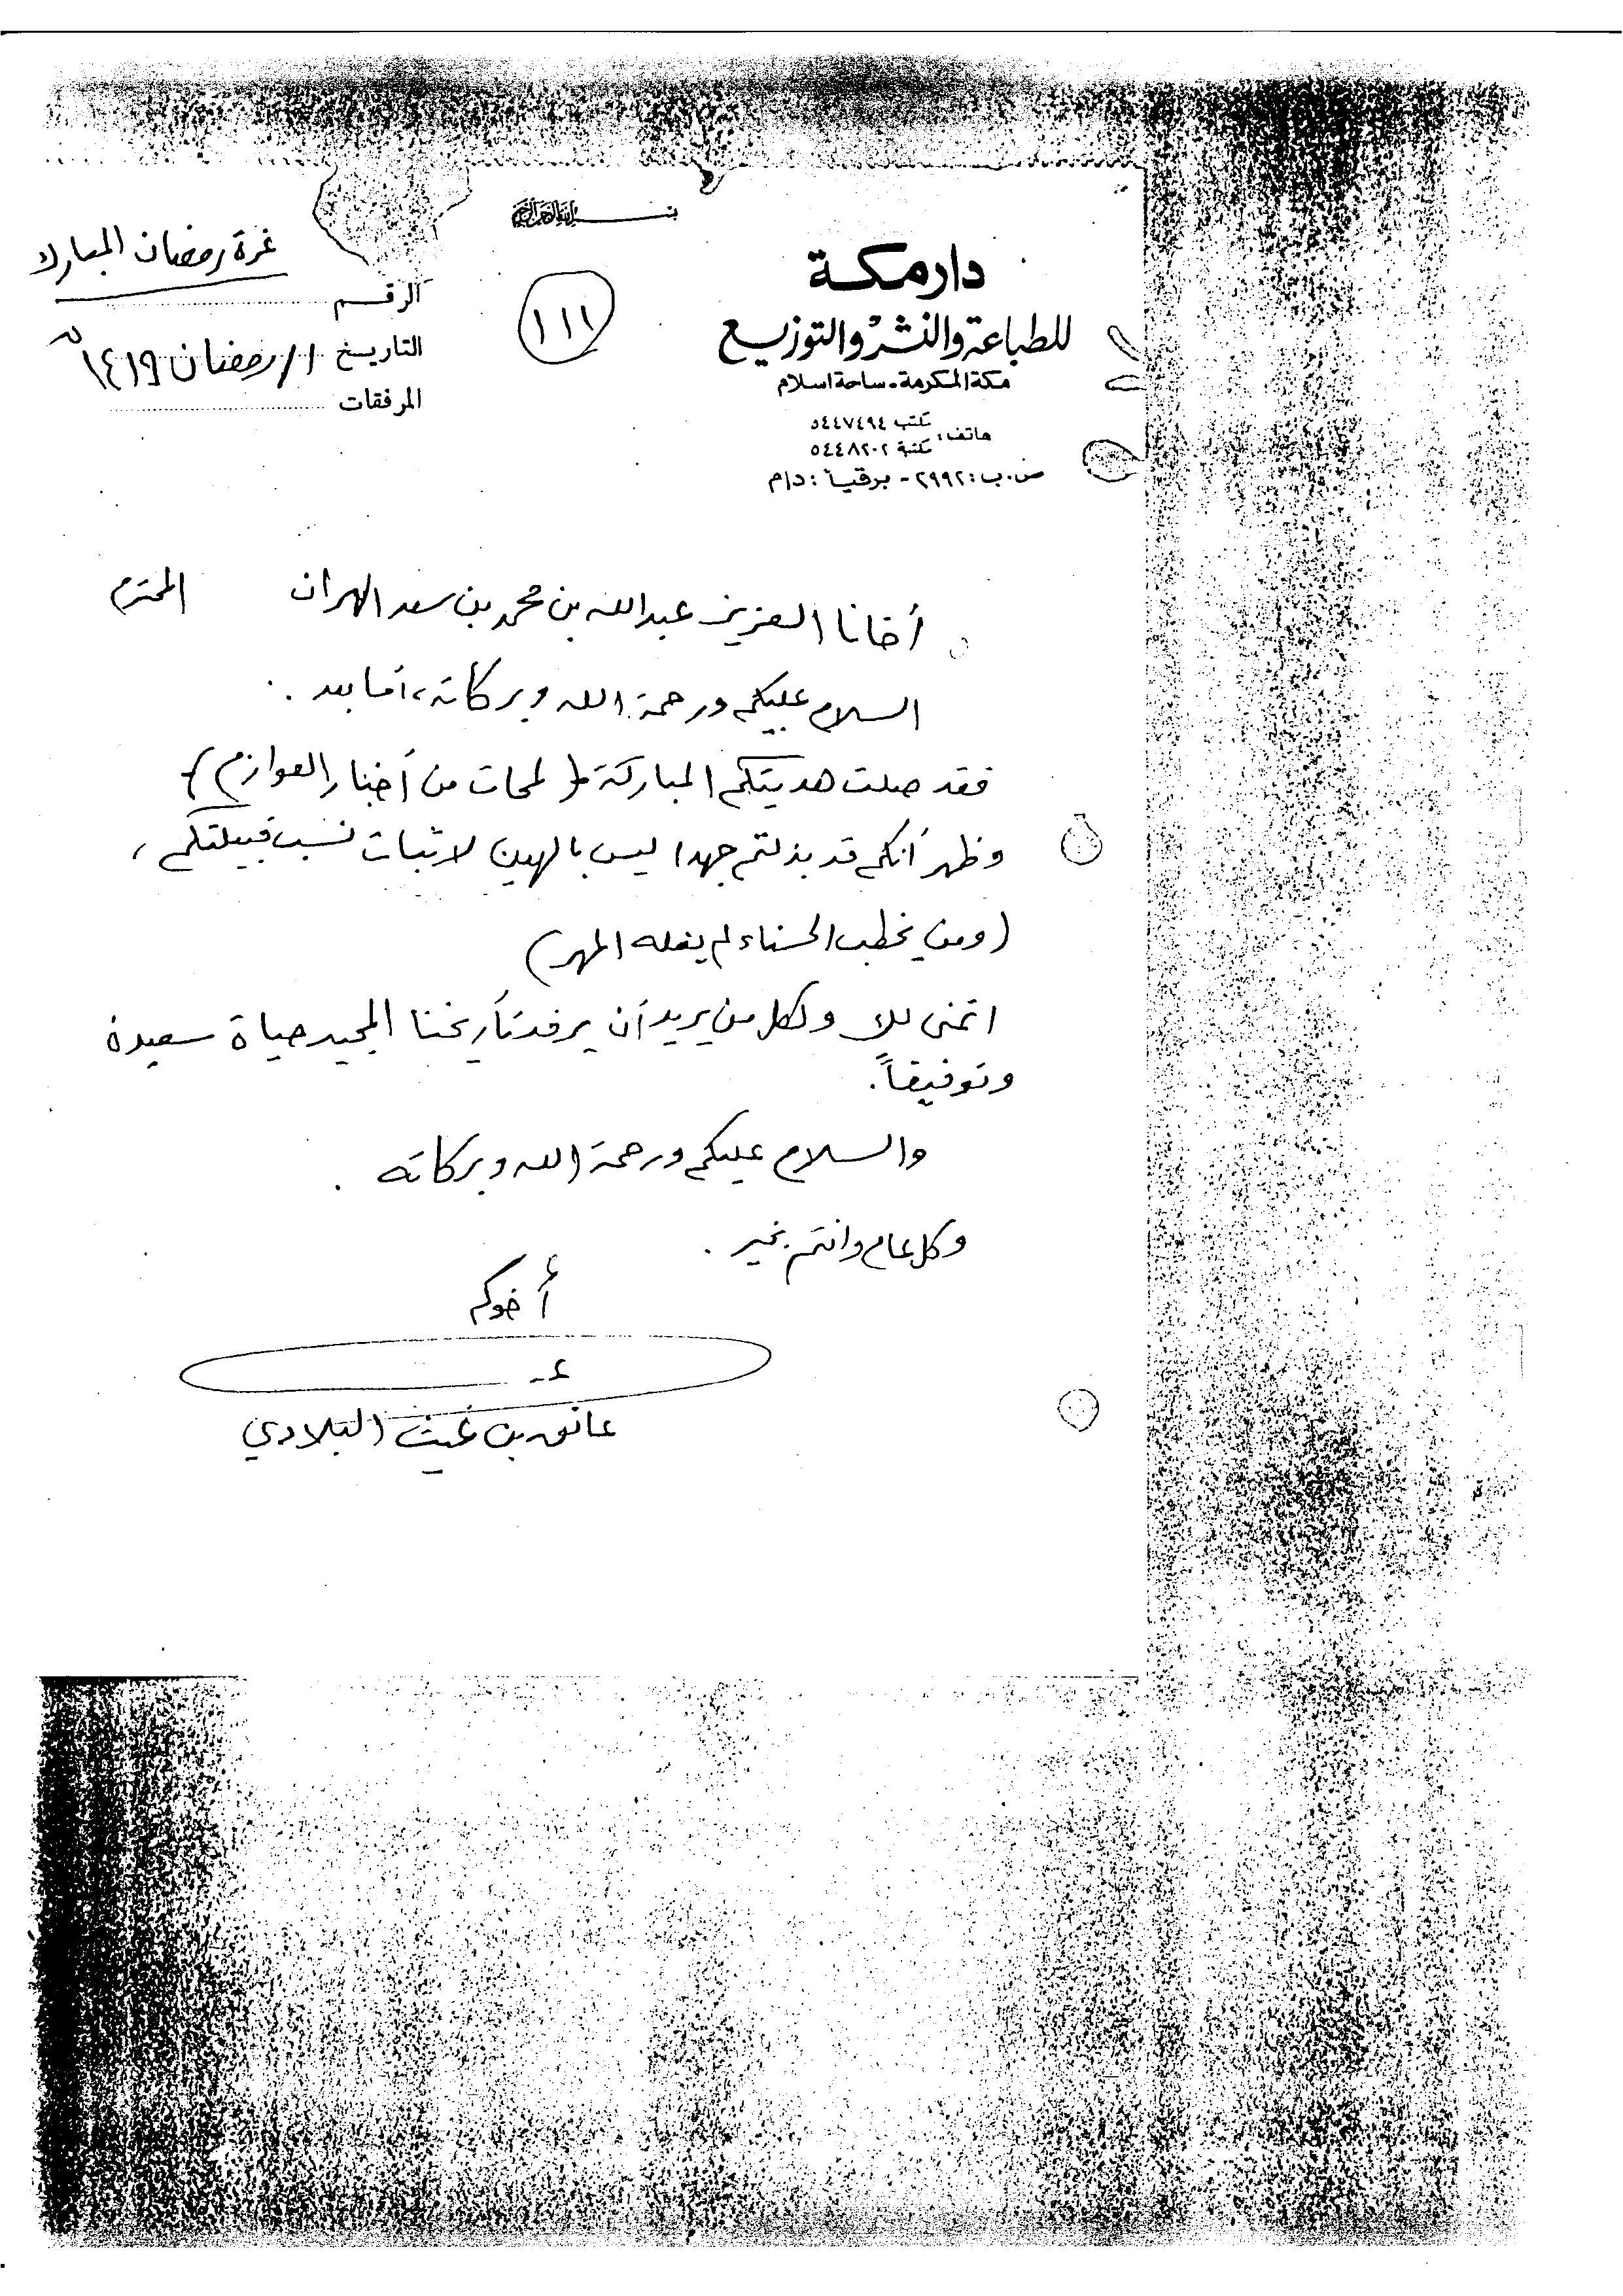 بسم الله الرحمن الرحيم
دار مكة
للطباعة والنشر والتوزيع
مكة المكرمة - ساحة اسلام
هاتف : مكتب ٥٤٤٧٤٩٤
مكتبة ٥٤٤٨٢٠٢
ص . ب : ٢٩٩٢ - برقياً : دام
١١١
غرة رمضان المبارك
الرقم
التاريخ ١/رمضان ١٤١٩هـ
المرفقات
أخانا العزيز عبدالله بن محمد بن سعد الهران المحترم
السلام عليكم ورحمة الله وبركاته، أما بعد .
فقد صلت هديتكم المباركة { لمحات من أخبار العوازم }
وظهر أنكم قد بذلتم جهدا ليس بالهين لاثبات نسب قبيلتكم ،
(ومن يخطب الحسناء لم يغله المهر)
اتمنى لك ولكل من يريد أن يرفد تأريخنا المجيد حياة سعيدة
وتوفيقاً .
والسلام عليكم ورحمة الله وبركاته .
وكل عام وانتم بخير .
أخوكم
عاتق بن غيث البلادي